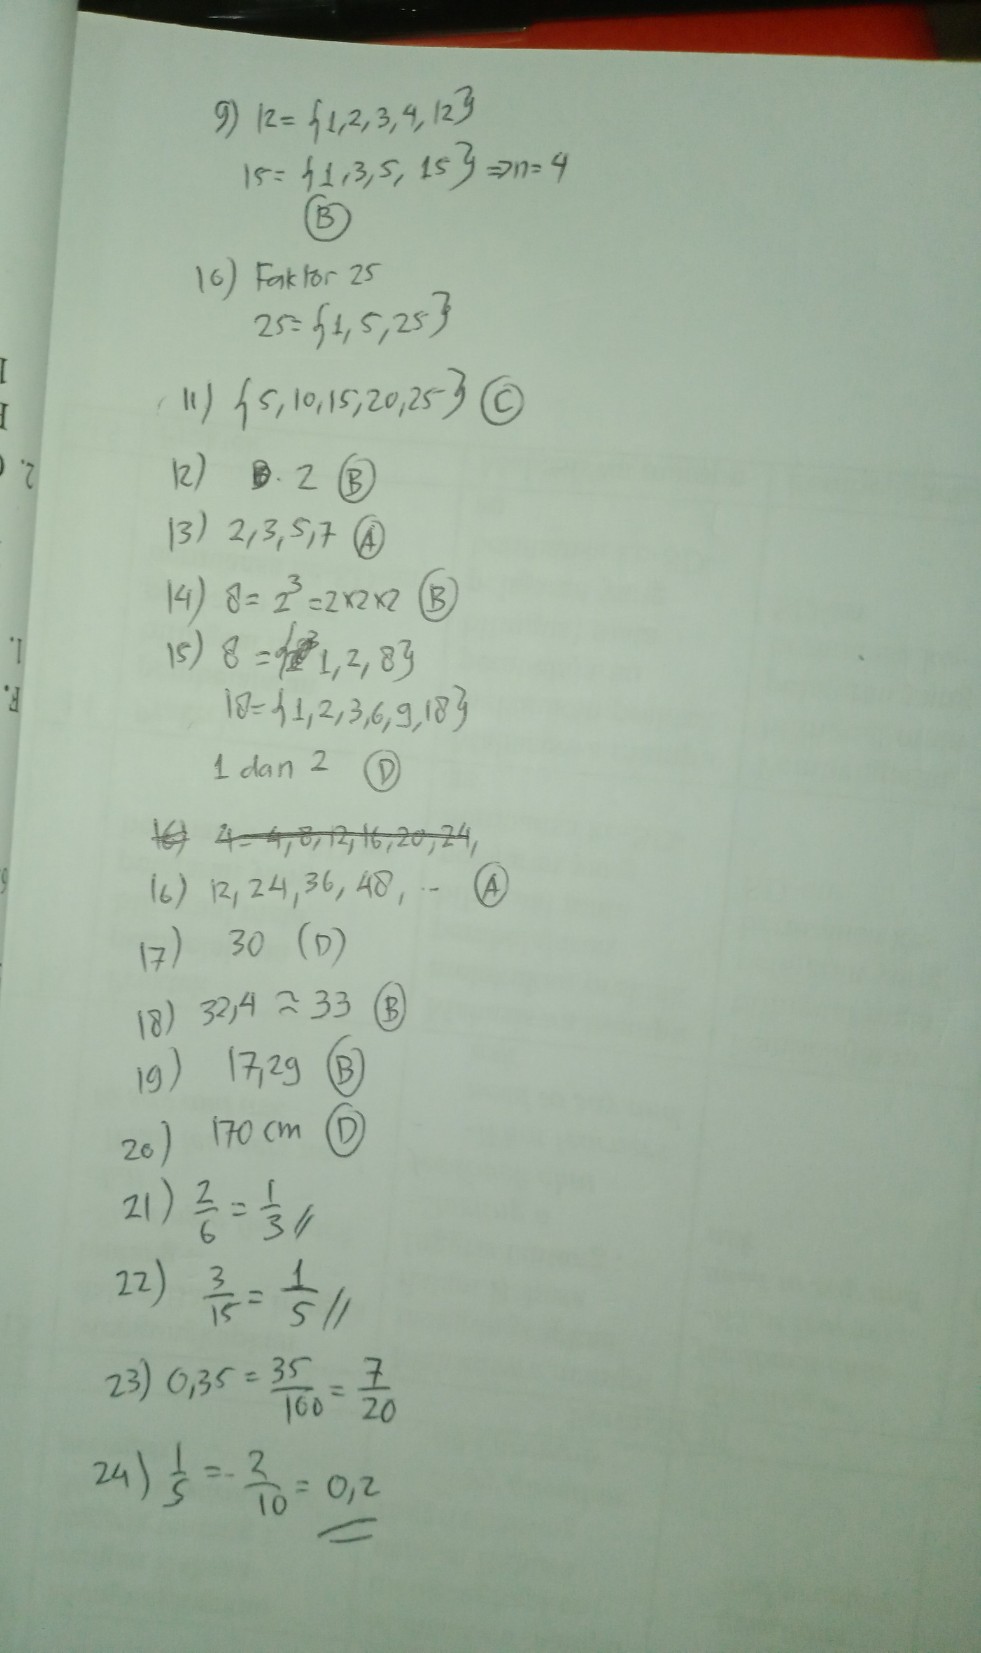 9) 12 = {1,2,3,4,12}
15 = {1,3,5, 15} ⇒ n = 4
B
10) Faktor 25
25 = {1, 5, 25}
11) {5,10,15,20,25} C
12) 2 B
13) 2,3,5,7 A
14) 8 = 2³ = 2×2×2 B
15) 8 = {1,2,8}
18 = {1,2,3,6,9,18}
1 dan 2 D
16) 4 = 4,8,12,16,20,24,
16) 12,24,36,48, ... A
17) 30 (D)
18) 32,4 ≈ 33 B
19) 17,29 B
20) 170 cm D
21) 2/6 = 1/3 //
22) 3/15 = 1/5 //
23) 0,35 = 35/100 = 7/20
24) 1/5 = 2/10 = 0,2